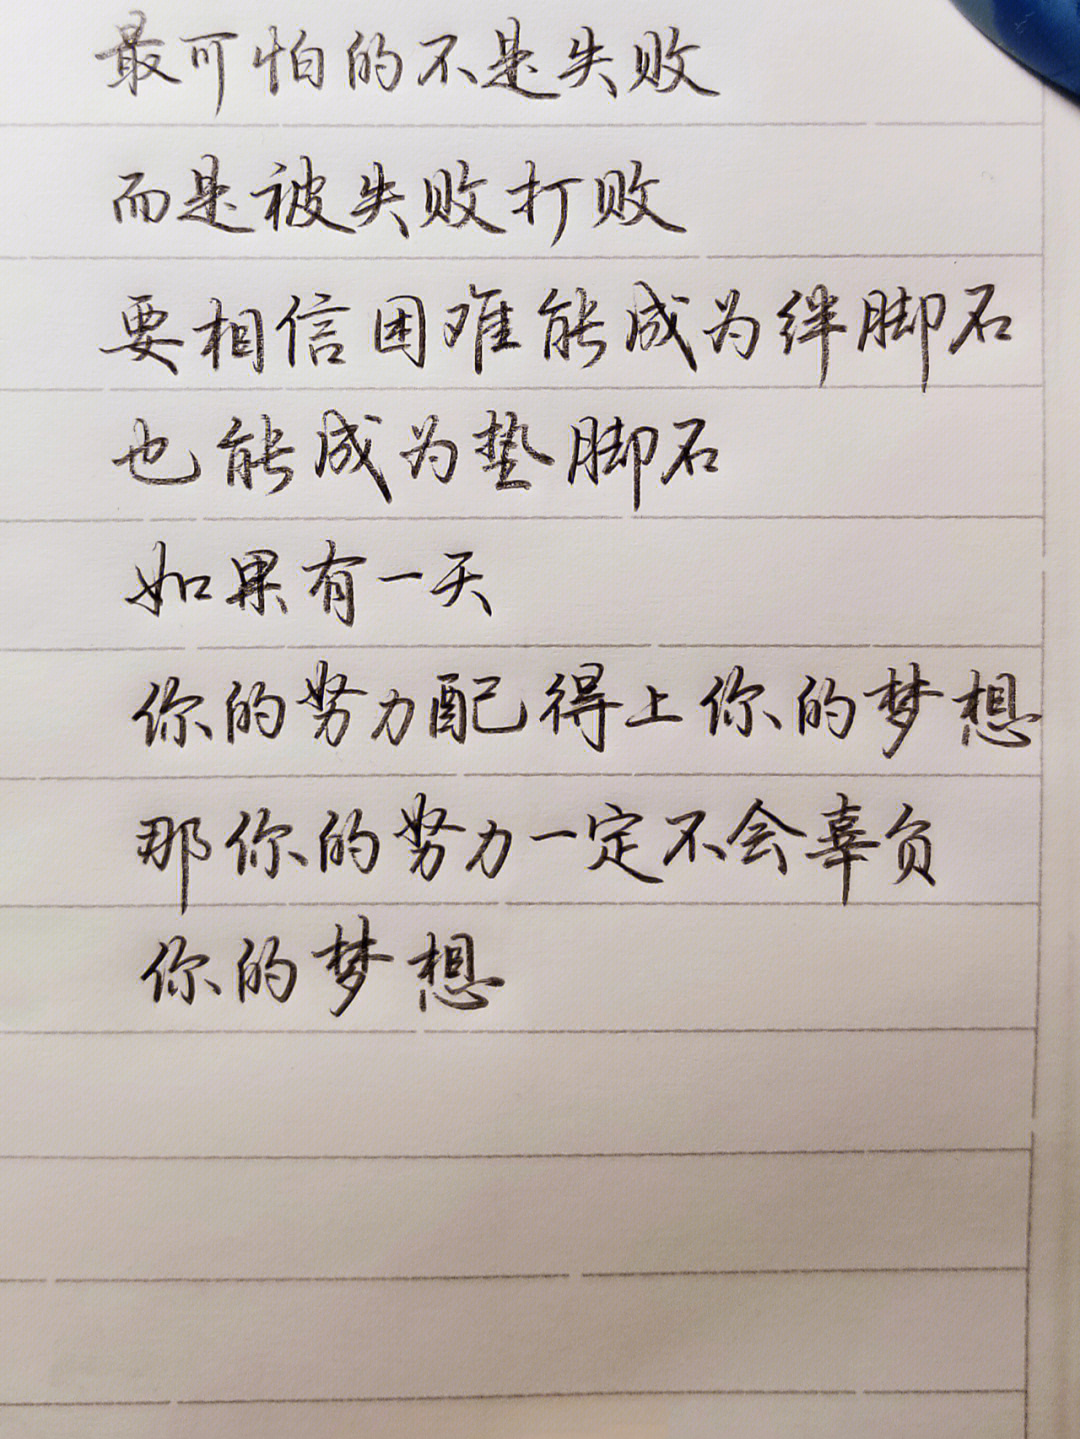 最可怕的不是失败
而是被失败打败
要相信困难能成为绊脚石
也能成为垫脚石
如果有一天
你的努力配得上你的梦想
那你的努力一定不会辜负
你的梦想